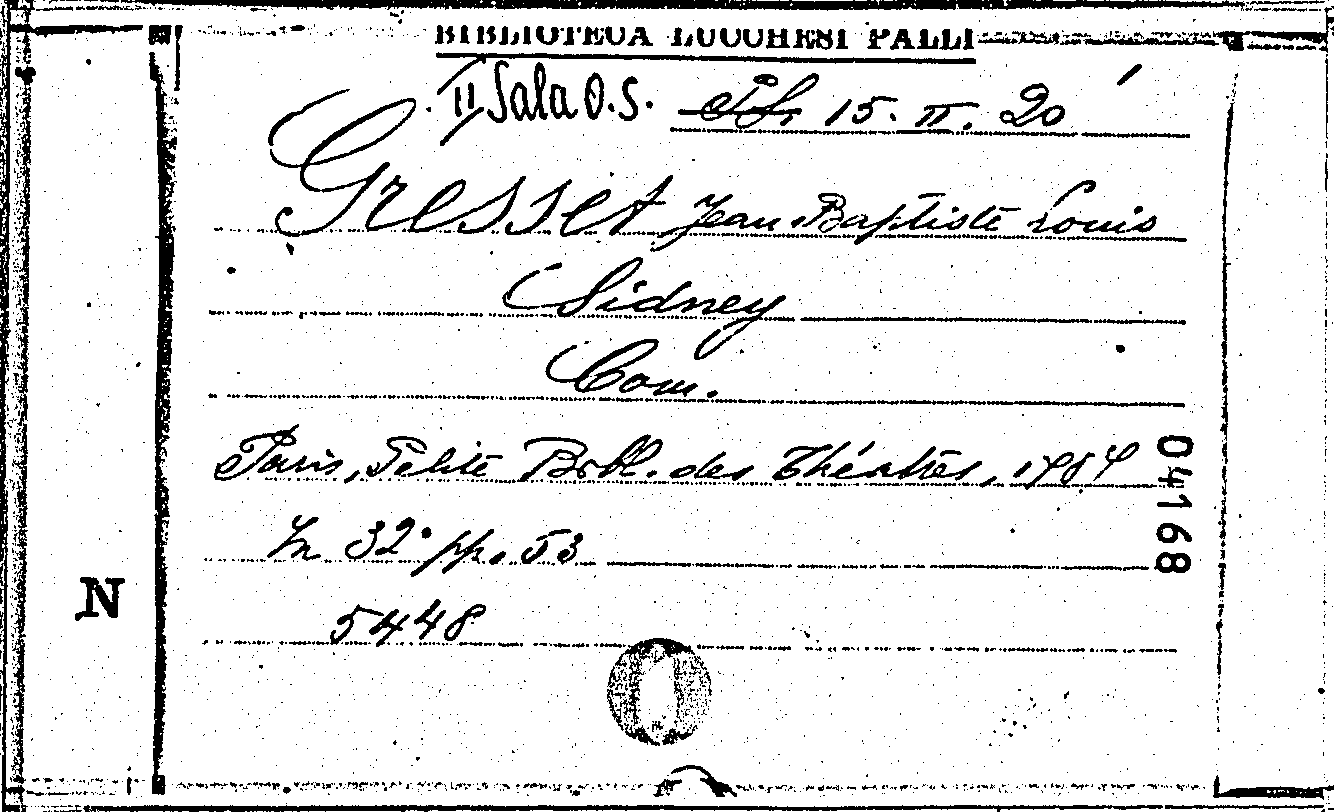 BIBLIOTECA LUCCHESI PALLI
II Sala O.S. 15. II. 20
Gresset Jean Baptiste Louis
Sidney
Com.
Paris, Petite Bibl. des Théatres, 1784
In 32° pp. 53
5448
04168
N